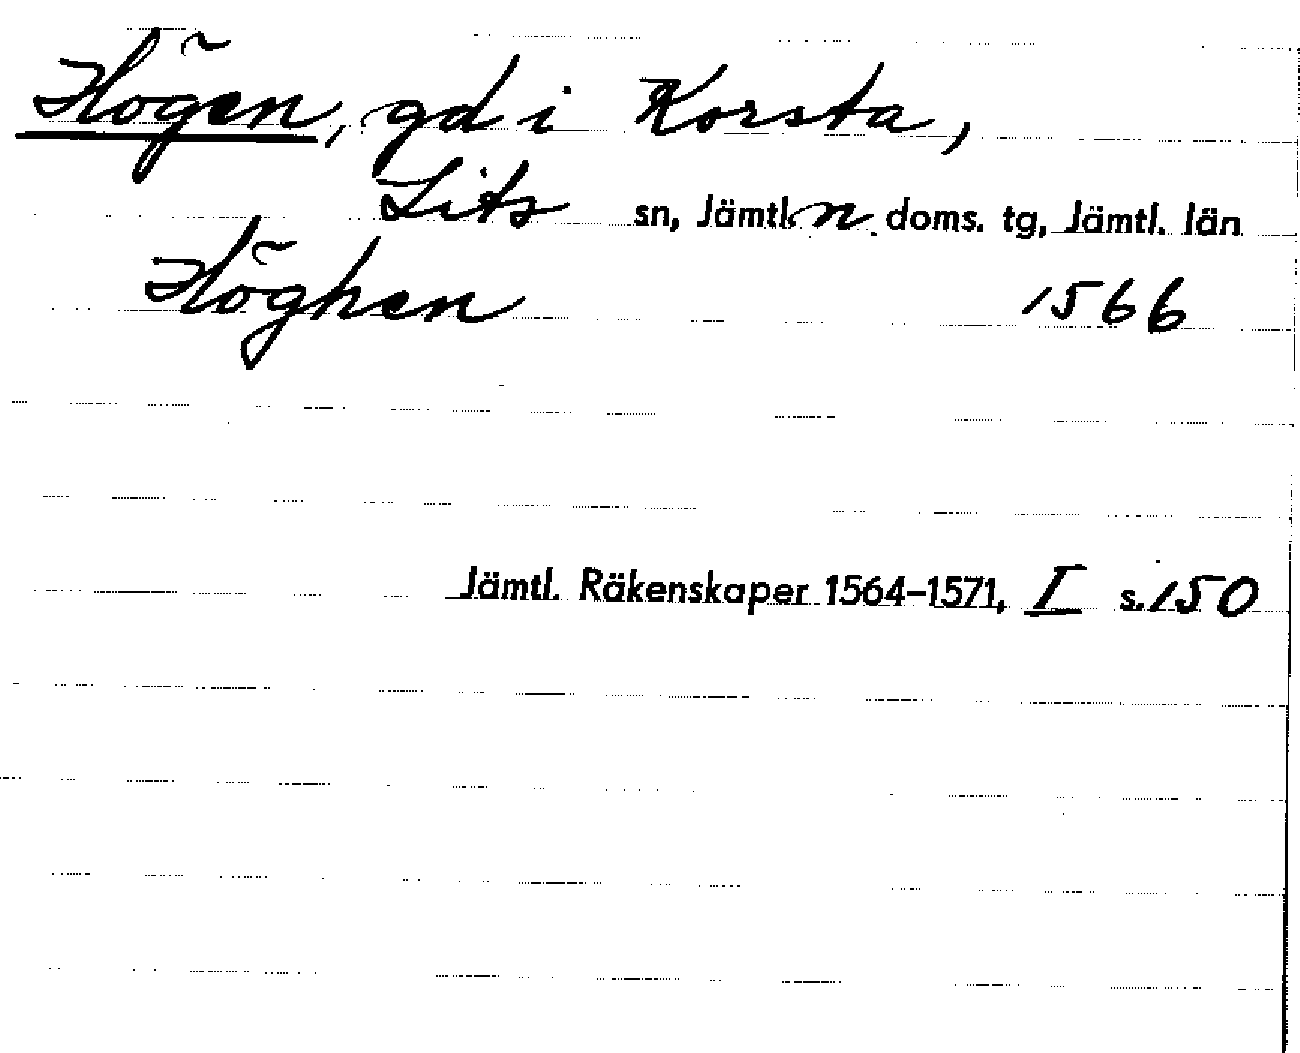 Högen, gd i Korsta,
Lits sn, Jämtl. n. doms. tg, Jämtl. län
Höghen 1566
Jämtl. Räkenskaper 1564–1571, I s. 150